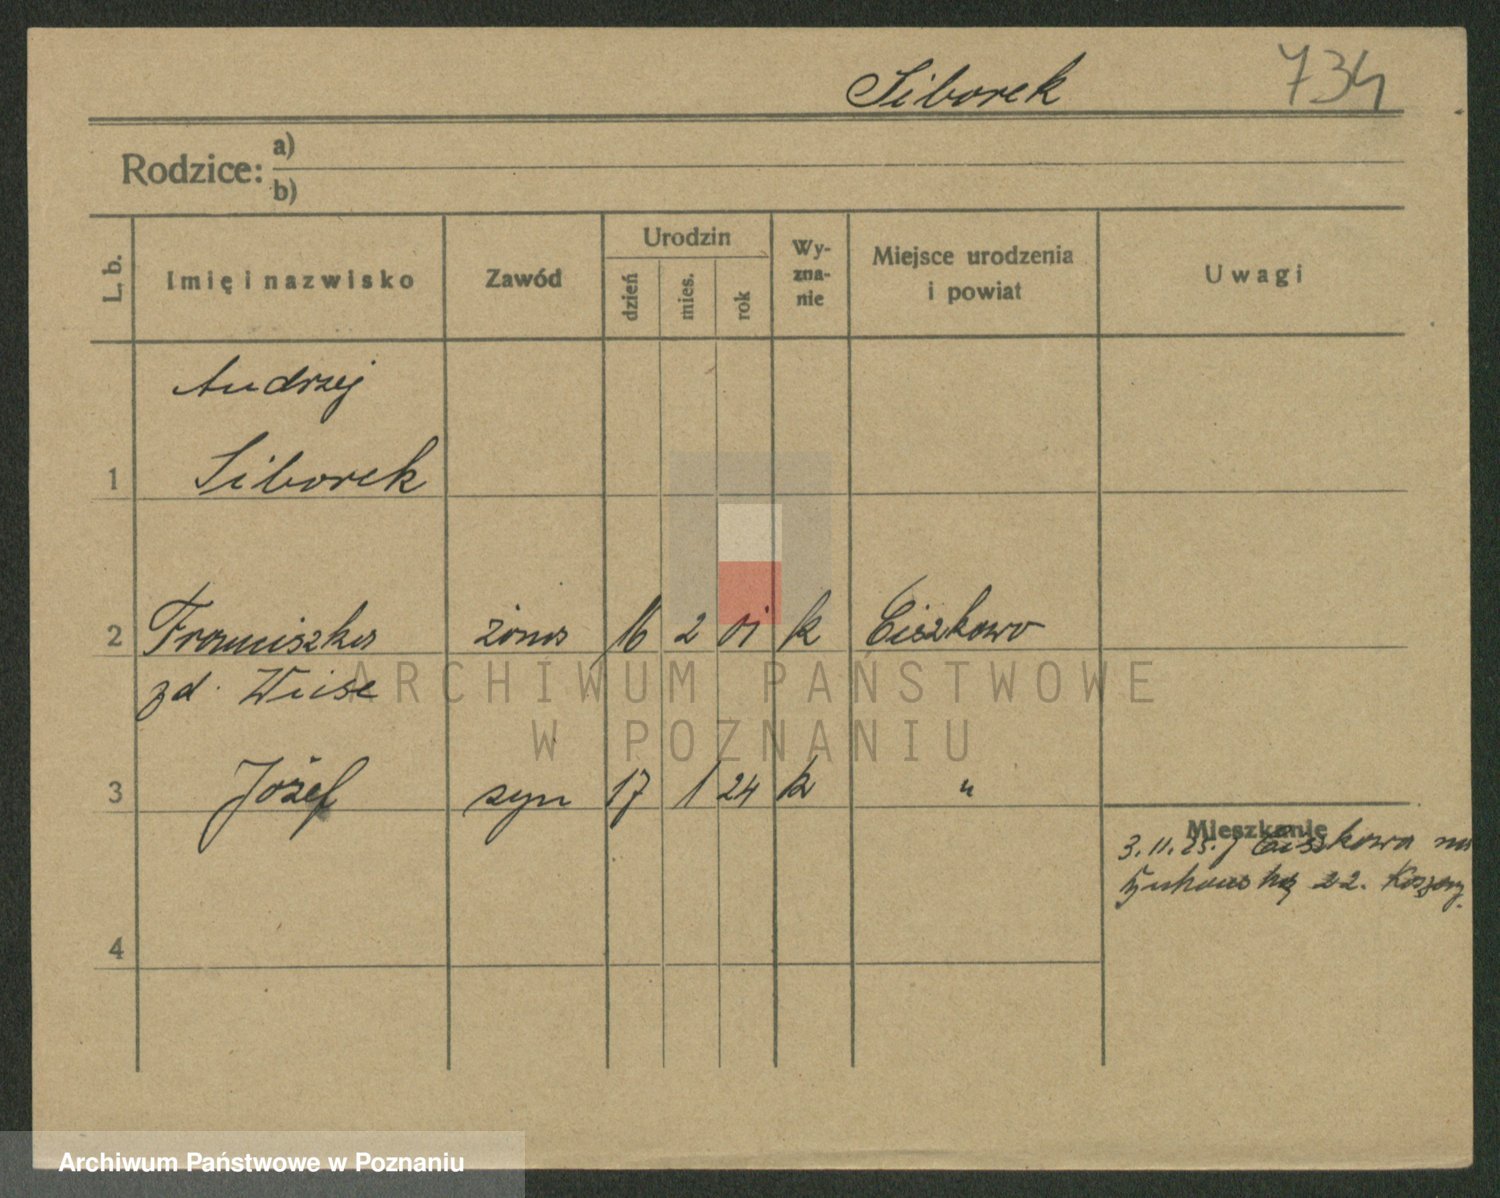 Siborek 734
Rodzice: a)
b)
L. b. Imię i nazwisko Zawód Urodzin dzień mies. rok Wy-zna-nie Miejsce urodzenia i powiat Uwagi
Andrzej
1 Siborek
2 Franciszka żona 16 2 01 k Ciszkowo
zd. Weise
3 Józef syn 17 1 24 k "
Mieszkanie
3.11.25. Ciszkowa na
22.
4
ARCHIWUM PAŃSTWOWE
W POZNANIU
Archiwum Państwowe w Poznaniu